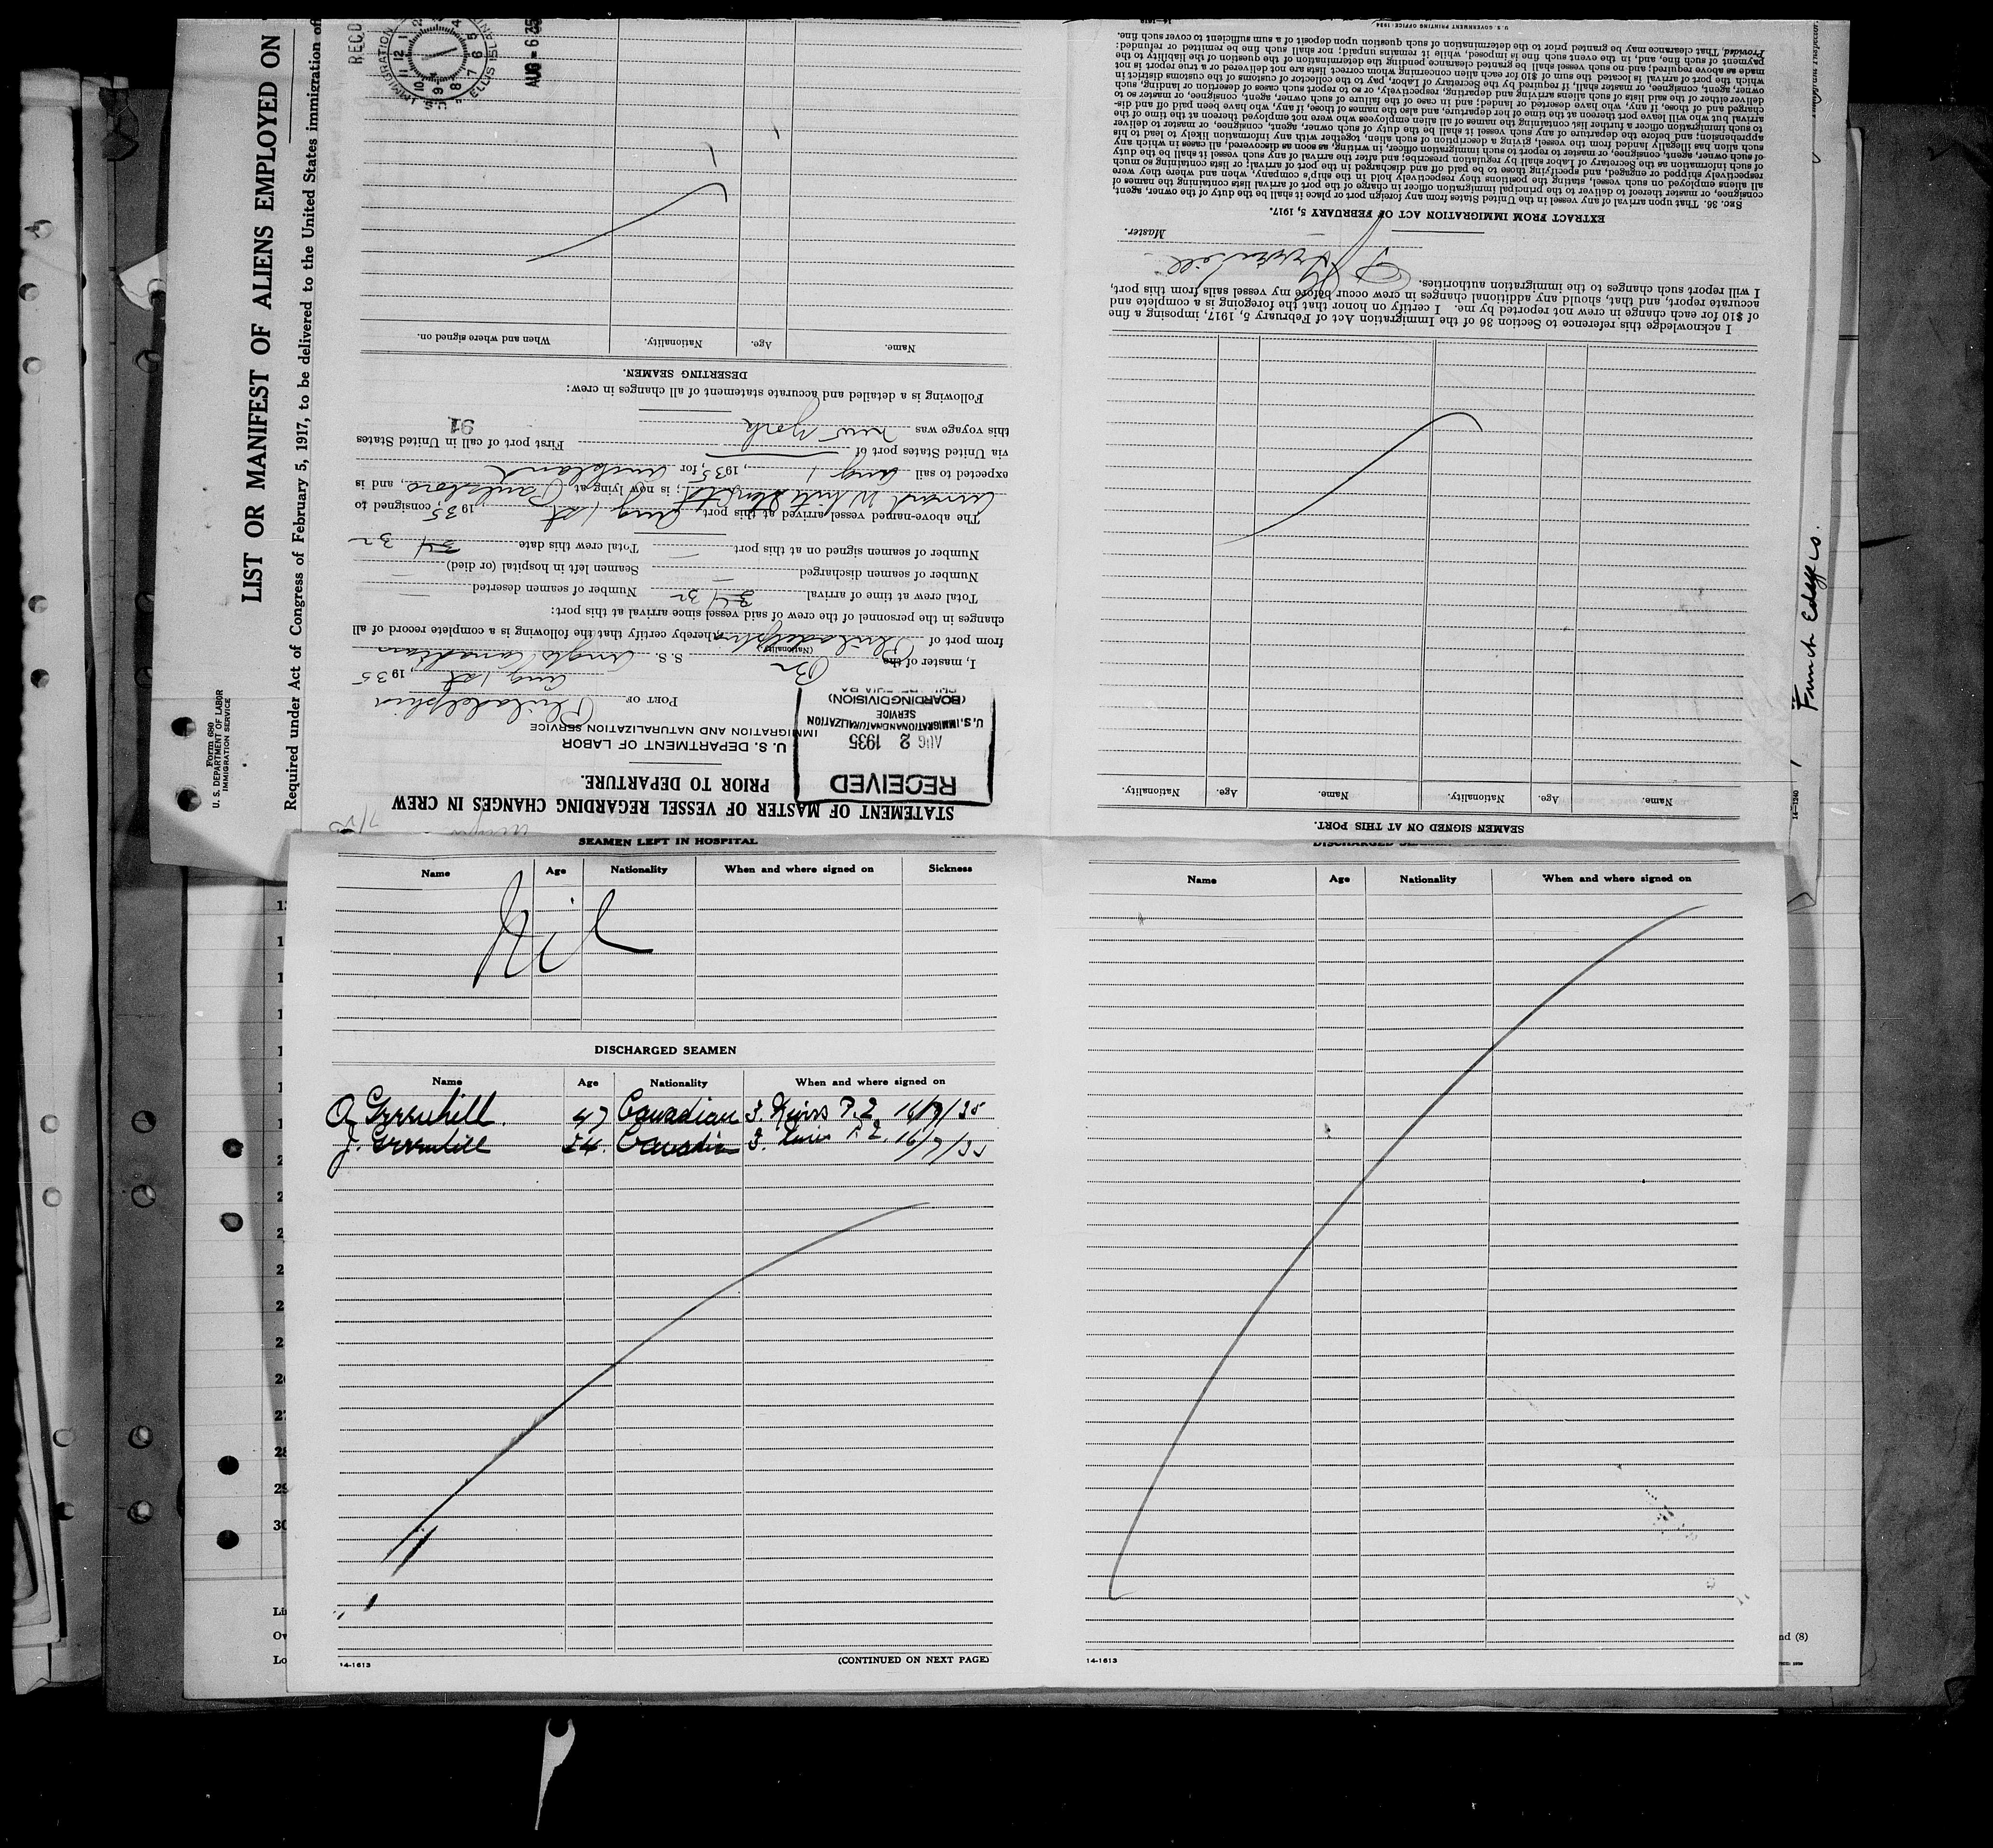 LIST OR MANIFEST OF ALIENS EMPLOYED ON
Required under Act of Congress of February 5, 1917, to be delivered to the United States immigration of
Form 689
U. S. DEPARTMENT OF LABOR
IMMIGRATION SERVICE
REC'D
IMMIGRATION
ELLIS ISL
AUG - 6 35
STATEMENT OF MASTER OF VESSEL REGARDING CHANGES IN CREW
PRIOR TO DEPARTURE.
U. S. DEPARTMENT OF LABOR
IMMIGRATION AND NATURALIZATION SERVICE
RECEIVED
AUG 2 1935
U.S. IMMIGRATION AND NATURALIZATION
SERVICE
(BOARDING DIVISION)
PORT OF Philadelphia
Aug 1st, 1935
I, master of the Br S. S. Anglo Canadian
(Nationality)
from port of Philadelphia, hereby certify that the following is a complete record of all
changes in the personnel of the crew of said vessel since arrival at this port:
Total crew at time of arrival 34 32 Number of seamen deserted —
Number of seamen discharged — Seamen left in hospital (or died) —
Number of seamen signed on at this port — Total crew this date 34 32
The above-named vessel arrived at this port Aug 1st 1935, consigned to
Cunard White Star Ltd; is now lying at Paulsboro, and is
expected to sail Aug 1, 1935, for
via United States port of First port of call in United States
this voyage was New York
91
Following is a detailed and accurate statement of all changes in crew:
DESERTING SEAMEN.
Name. Age. Nationality. When and where signed on.
SEAMEN SIGNED ON AT THIS PORT.
Name. Age. Nationality. Name. Age. Nationality.
I acknowledge this reference to Section 36 of the Immigration Act of February 5, 1917, imposing a fine
of $10 for each change in crew not reported by me. I certify on honor that the foregoing is a complete and
accurate report, and that, should any additional changes in crew occur before my vessel sails from this port,
I will report such changes to the immigration authorities.
Master.
EXTRACT FROM IMMIGRATION ACT OF FEBRUARY 5, 1917.
SEC. 36. That upon arrival of any vessel in the United States from any foreign port or place it shall be the duty of the owner, agent,
consignee, or master thereof to deliver to the principal immigration officer in charge of the port of arrival lists containing the names of
all aliens employed on such vessel, stating the positions they respectively hold in the ship's company, when and where they were
respectively shipped or engaged, and specifying those to be paid off and discharged in the port of arrival; or lists containing so much
of such information as the Secretary of Labor shall by regulation prescribe; and after the arrival of any such vessel it shall be the duty
of such owner, agent, consignee, or master to report to such immigration officer, in writing, as soon as discovered, all cases in which any
such alien has illegally landed from the vessel, giving a description of such alien, together with any information likely to lead to his
apprehension; and before the departure of any such vessel it shall be the duty of such owner, agent, consignee, or master to deliver
to such immigration officer a further list containing the names of all alien employees who were not employed thereon at the time of the
arrival but who will leave port thereon at the time of her departure, and also the names of those, if any, who have been paid off and dis-
charged and of those, if any, who have deserted or landed; and in case of the failure of such owner, agent, consignee, or master so to
deliver either of the said lists of such aliens arriving and departing, respectively, or so to report such cases of desertion or landing, such
owner, agent, consignee, or master, shall, if required by the Secretary of Labor, pay to the collector of customs of the customs district in
which the port of arrival is located the sum of $10 for each alien concerning whom correct lists are not delivered or a true report is not
made as above required; and no such vessel shall be granted clearance pending the determination of the question of the liability to the
payment of such fine, and, in the event such fine is imposed, while it remains unpaid; nor shall such fine be remitted or refunded:
Provided, That clearance may be granted prior to the determination of such question upon deposit of a sum sufficient to cover such fine.
U. S. GOVERNMENT PRINTING OFFICE: 1934
14—1240
Funch Edye & Co.
SEAMEN LEFT IN HOSPITAL
Name Age Nationality When and where signed on Sickness
Nil
DISCHARGED SEAMEN
Name Age Nationality When and where signed on
A Greenhill. 47 Canadian
J. Greenhill 24. Canadian
14-1613
(CONTINUED ON NEXT PAGE)
Name Age Nationality When and where signed on
14-1613
28
29
30
Ow
Lo
nd (8)